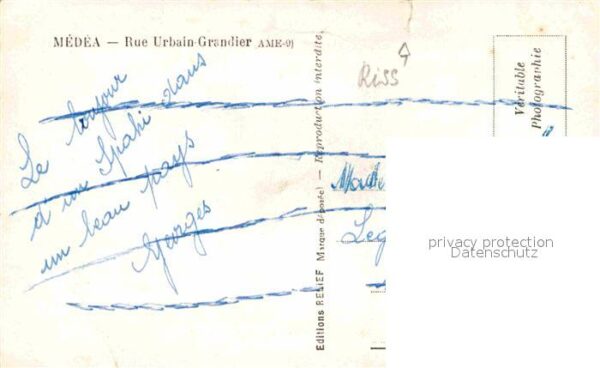 MÉDÉA — Rue Urbain-Grandier (AME-9)
Riss
Le bonjour
d'un Spahi dans
un beau pays
Georges
Editions RELIEF (Marque déposée) — Reproduction interdite.
Véritable
Photographie
privacy protection
Datenschutz